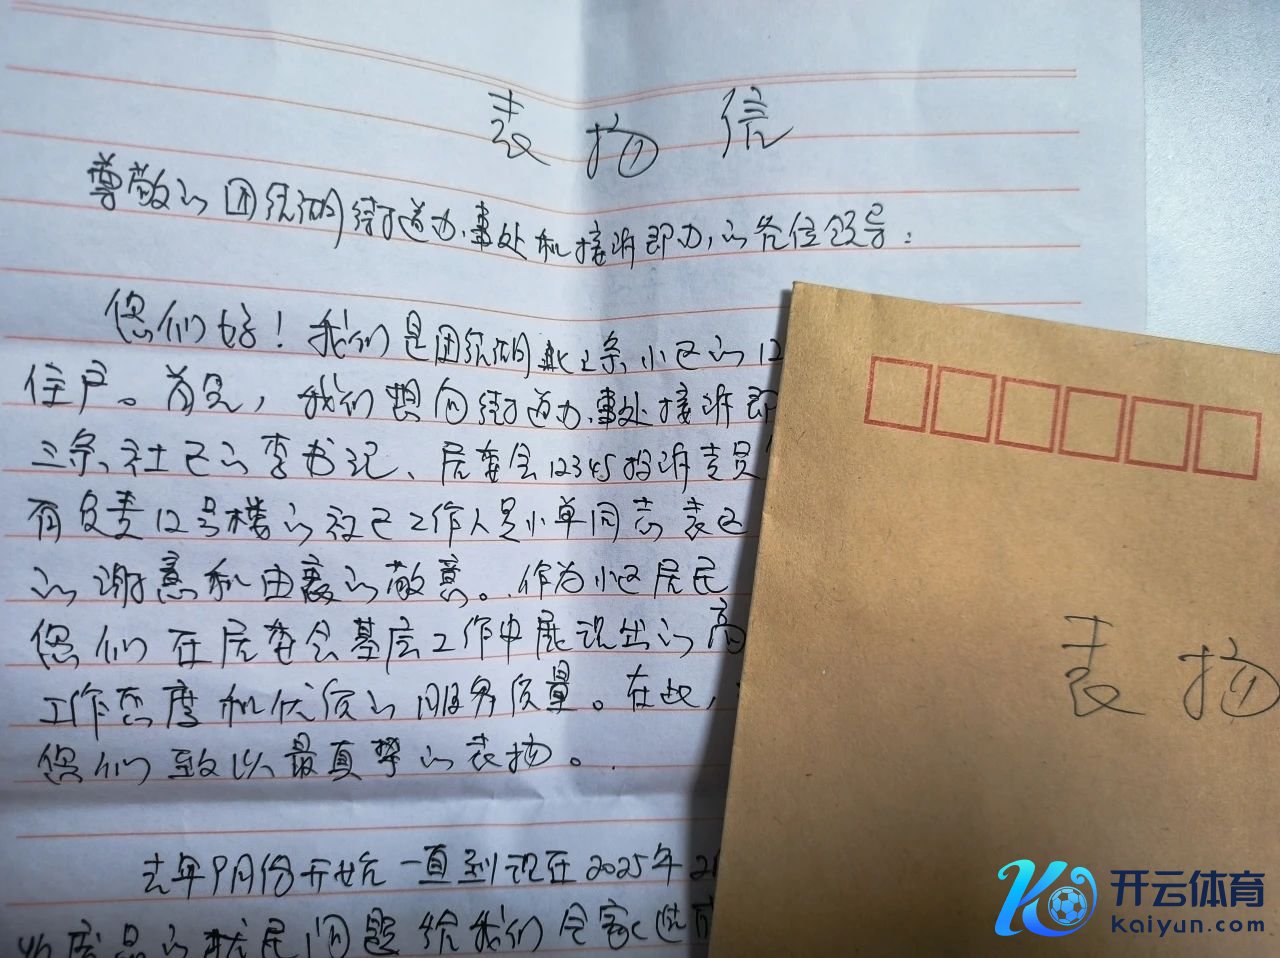 表扬信
尊敬的团结湖街道办事处和接诉即办的各位领导：
您们好！我们是团结湖北三条小区的12
住户。首先，我们想向街道办事处接诉即
三条社区的李书记、居委会12345投诉专员
有负责12号楼的社区工作人员小单同志表达
的谢意和由衷的敬意。作为小区居民
您们在居委会基层工作中展现出的高
工作态度和优质的服务质量。在此，
您们致以最真挚的表扬。
去年9月份开始一直到现在2025年2
的扰民问题给我们全家
表扬
开云体育
Kaiyun.com